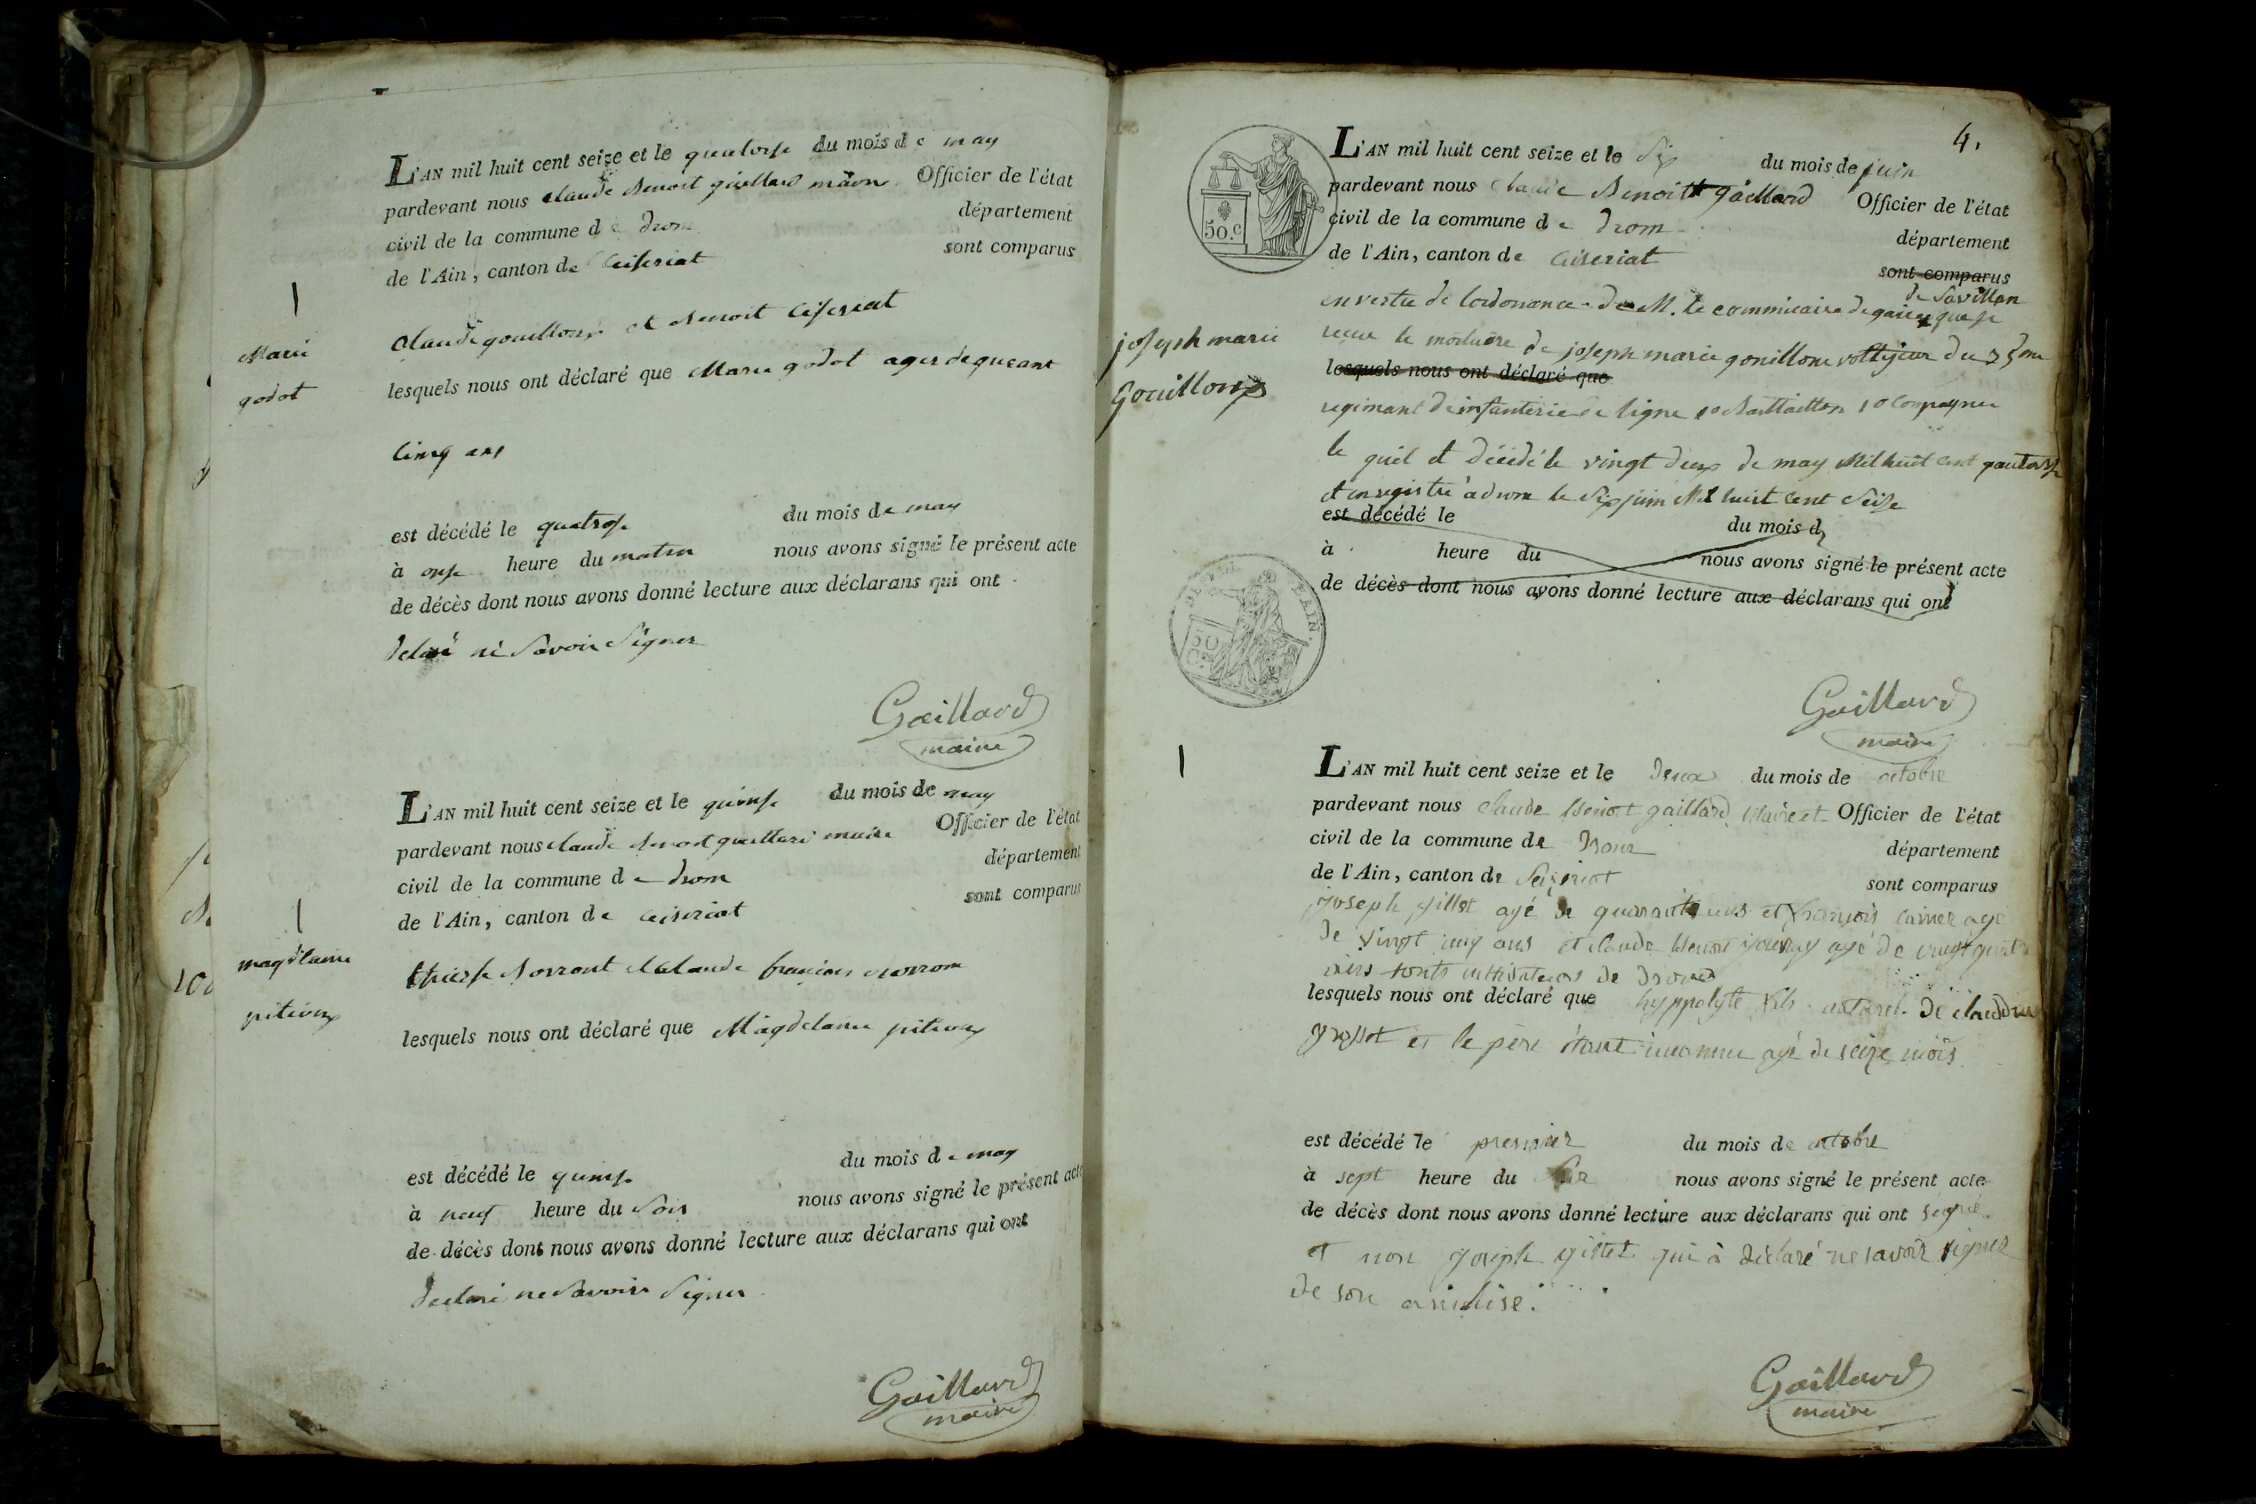 L'AN mil huit cent seize et le quatorse du mois de may
pardevant nous claude Benoit gaillard maire Officier de l'état
civil de la commune de drom département
de l'Ain, canton de Ceiseriat sont comparus
Marie
godot
Claude gouilloux et Benoit Ceiseriat
lesquels nous ont déclaré que Marie godot ager de queant
Cinq ans
est décédé le quatrose du mois de may
à onse heure du matin nous avons signé le présent acte
de décès dont nous avons donné lecture aux déclarans qui ont
déclaré né Savoir Signer
Gaillard
maire
L'AN mil huit cent seize et le quinse du mois de may
pardevant nous claude Benoit gaillard maire Officier de l'état
civil de la commune de drom département
de l'Ain, canton de ceiseriat sont comparus
magdlaine
pitioux
claude françois
lesquels nous ont déclaré que Magdelaine pitioux
est décédé le quinse du mois de may
à neuf heure du Soir nous avons signé le présent acte
de décès dont nous avons donné lecture aux déclarans qui ont
declaré ne Savoir Signer
Gaillard
maire
4.
50.c
L'AN mil huit cent seize et le Six du mois de juin
pardevant nous Claude Benoit gaillard Officier de l'état
civil de la commune de drom département
de l'Ain, canton de Ceiseriat sont comparus
joseph marie
Gouilloux
en vertu de lordonance de M. le commicaire de gaire que je
recue le de joseph marie gouilloux voltijeur du 35me
lesquels nous ont déclaré que
regimant de infanterie de ligne
le quel et décédé le vingt deux de may Mil huit cent quatorse
et enregistré a drom le Six juin Mil huit cent Seise
est décédé le du mois d
à heure du nous avons signé le présent acte
de décès dont nous avons donné lecture aux déclarans qui ont
Gaillard
maire
L'AN mil huit cent seize et le deux du mois de octobre
pardevant nous claude Benoit gaillard Maire et Officier de l'état
civil de la commune de Drom département
de l'Ain, canton de Seizeriat sont comparus
joseph gillet agé de quarante ans et françois age
de vingt cinq ans et claude Benoit agé de vingt quatre
ans touts cultivateurs de Drom
lesquels nous ont déclaré que hyppolyte fils naturel de
et le père étant inconnu agé de seize mois
est décédé le premier du mois de octobre
à sept heure du soir nous avons signé le présent acte
de décès dont nous avons donné lecture aux déclarans qui ont signé
et non joseph gillet qui à déclaré ne savoir signer
de son
Gaillard
maire